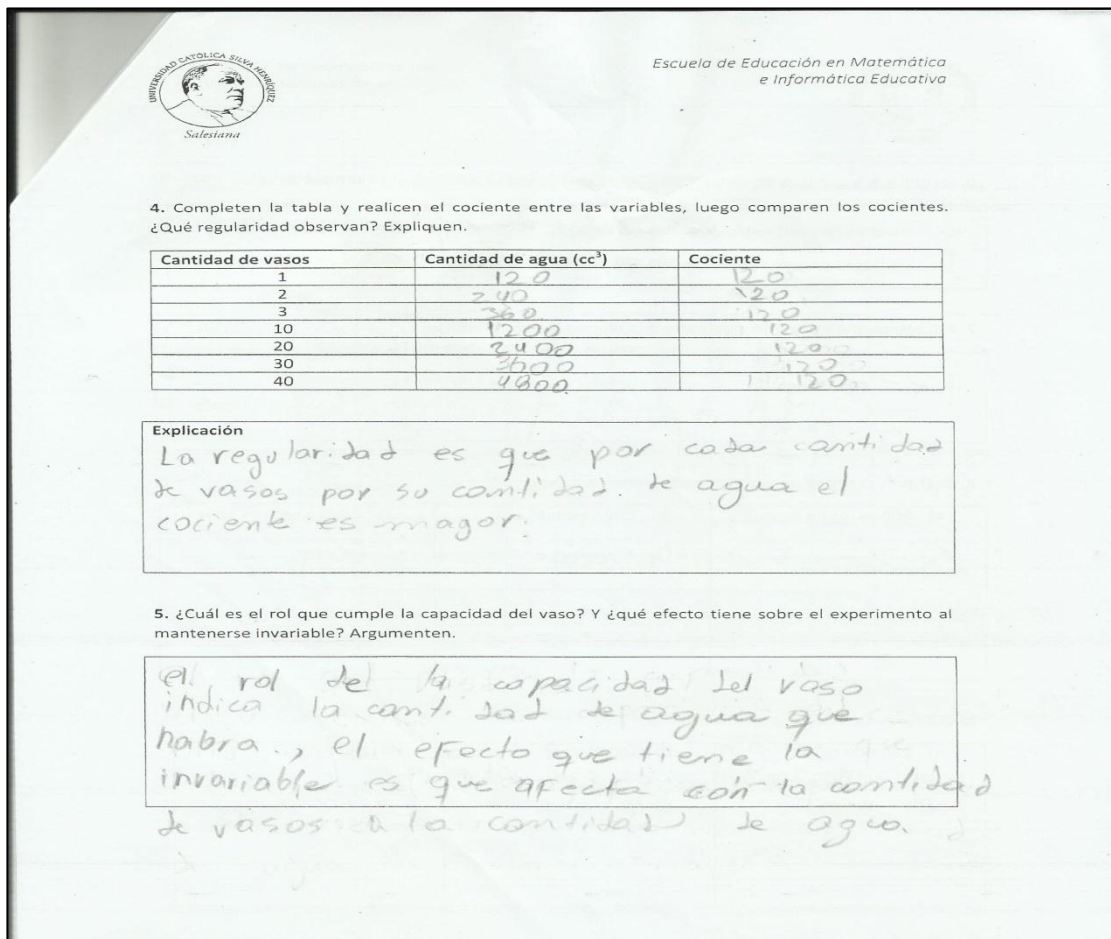 UNIVERSIDAD CATÓLICA SILVA HENRÍQUEZ
Salesiana
Escuela de Educación en Matemática
e Informática Educativa
4. Completen la tabla y realicen el cociente entre las variables, luego comparen los cocientes.
¿Qué regularidad observan? Expliquen.
Cantidad de vasos Cantidad de agua (cc³) Cociente
1 120 120
2 240 120
3 360 120
10 1200 120
20 2400 120
30 3600 120
40 4800 120
Explicación
La regularidad es que por cada cantidad
de vasos por su cantidad. de agua el
cociente es magor.
5. ¿Cuál es el rol que cumple la capacidad del vaso? Y ¿qué efecto tiene sobre el experimento al
mantenerse invariable? Argumenten.
el rol de la capacidad del vaso
indica la cantidad de agua que
habra, el efecto que tiene la
invariable es que afecta con la cantidad
de vasos a la cantidad de agua.